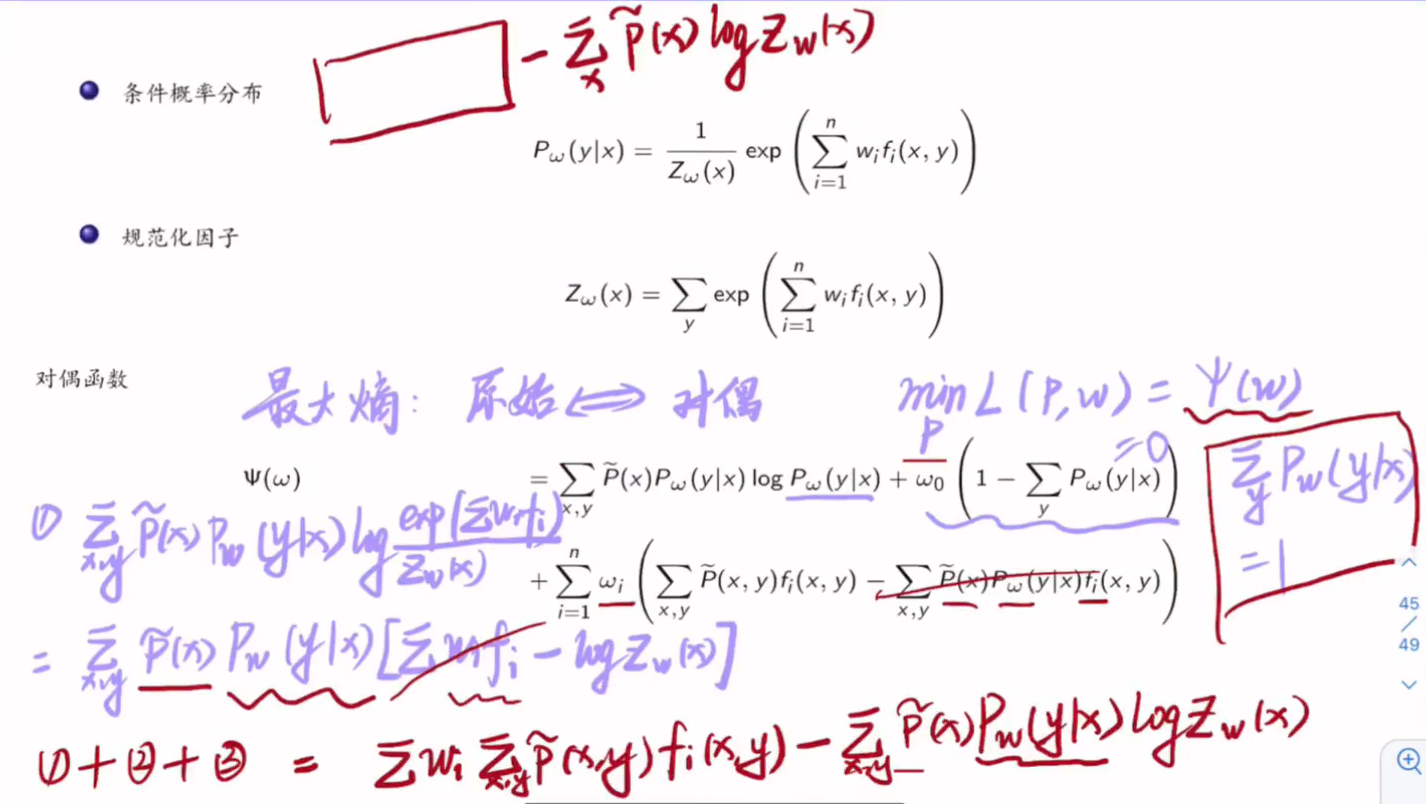 − Σ_x P̃(x) log Z_w(x)
条件概率分布
P_ω(y|x) = 1/Z_ω(x) exp (∑_{i=1}^{n} w_i f_i(x, y))
规范化因子
Z_ω(x) = ∑_y exp (∑_{i=1}^{n} w_i f_i(x, y))
对偶函数
最大熵: 原始 ⟺ 对偶
min_P L(P,w) = Ψ(w)
Ψ(ω) = ∑_{x,y} P̃(x)P_ω(y|x) log P_ω(y|x) + ω_0 (1 − ∑_y P_ω(y|x))
=0
Σ_y P_w(y|x)
=1
① Σ_{x,y} P̃(x) P_w(y|x) log exp(Σw_i f_i)/Z_w(x)
+ ∑_{i=1}^{n} ω_i (∑_{x,y} P̃(x, y)f_i(x, y) − ∑_{x,y} P̃(x)P_ω(y|x)f_i(x, y))
= Σ_{x,y} P̃(x) P_w(y|x) [Σ w_i f_i − log Z_w(x)]
①+②+③ = Σ w_i Σ_{x,y} P̃(x,y) f_i(x,y) − Σ_{x,y} P̃(x) P_w(y|x) log Z_w(x)
45
/
49